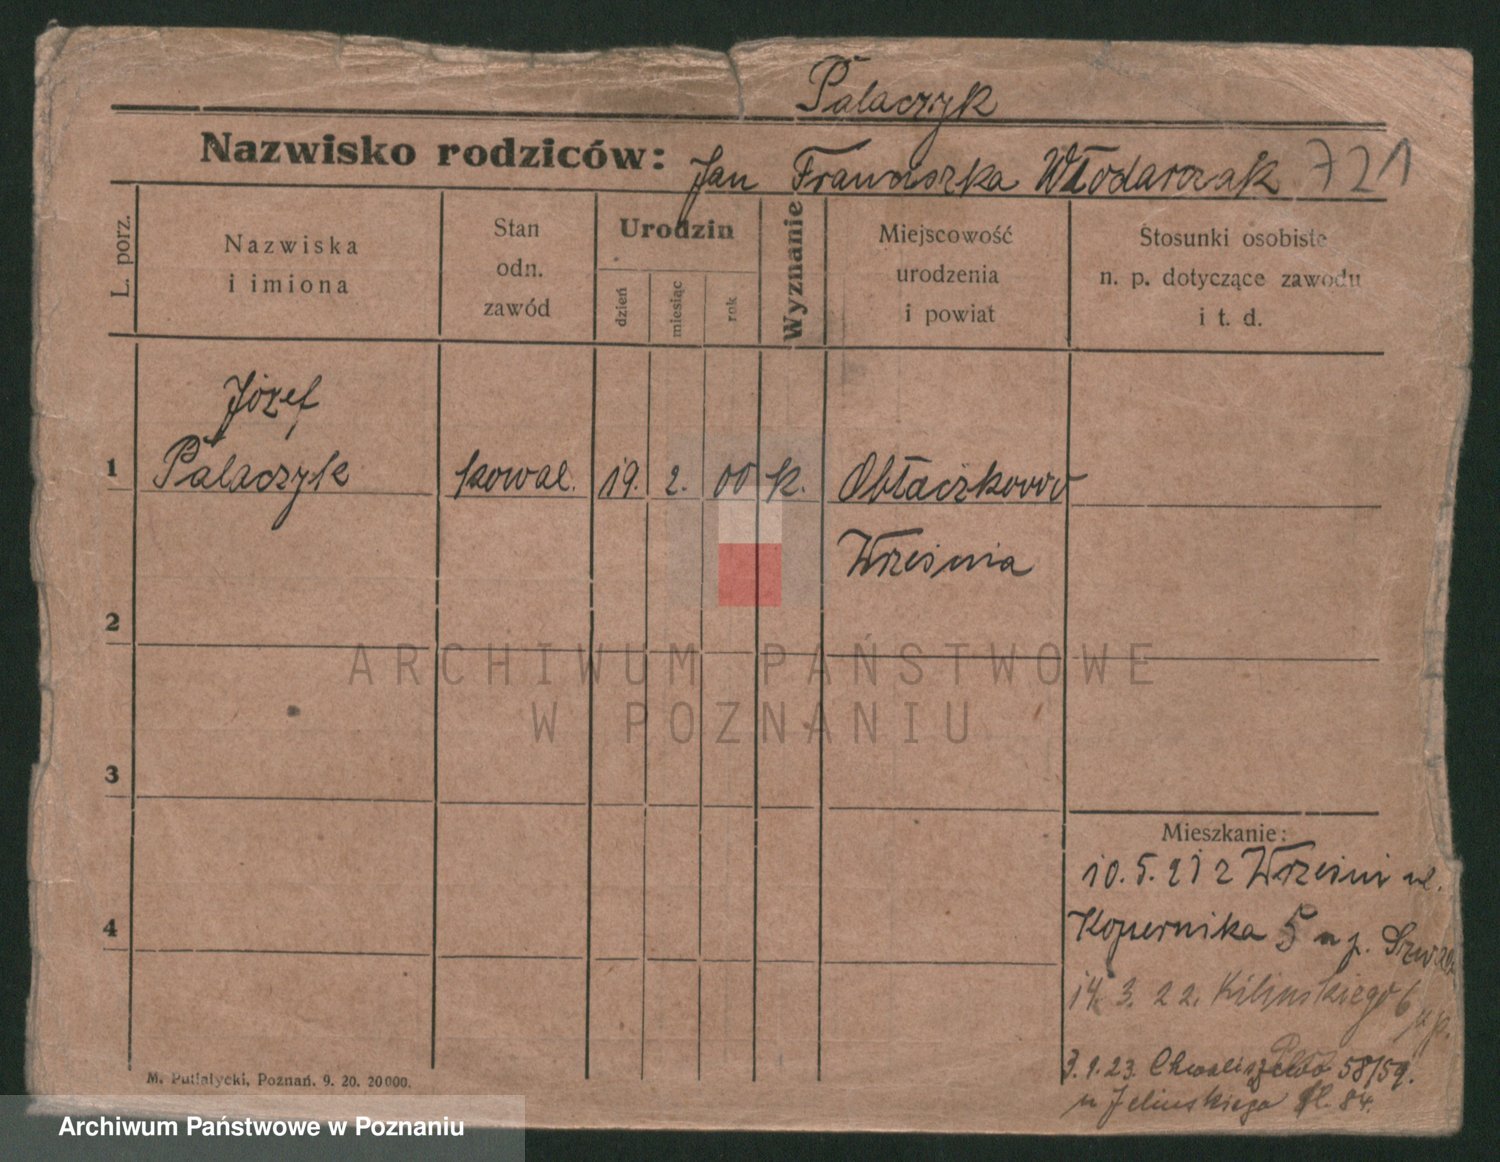 Palaczyk
Nazwisko rodziców: Jan Franciszka Włodarczak 721
L. porz.
Nazwiska i imiona
Stan odn. zawód
Urodzin
dzień
miesiąc
rok
Wyznanie
Miejscowość urodzenia i powiat
Stosunki osobiste n. p. dotyczące zawodu i t. d.
Józef
1 Palaczyk kowal. 19. 2. 00 k. Obłaczkowo
Września
2
ARCHIWUM PAŃSTWOWE
W POZNANIU
3
Mieszkanie:
10. 5. 21 z Wrześni ul.
4
Kopernika 5 u p.
14. 3. 22. Kilińskiego 6
23. 58/59.
u Jelińskiego 84.
M. Putiatycki, Poznań. 9. 20. 20000.
Archiwum Państwowe w Poznaniu